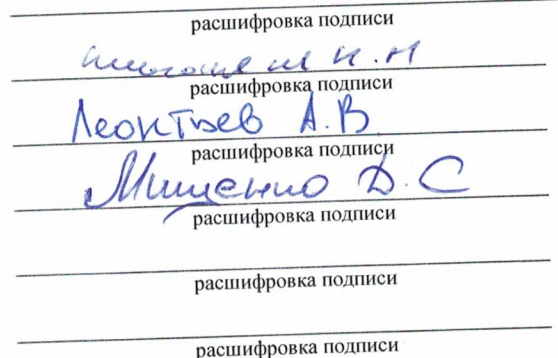 расшифровка подписи
Н. Н
расшифровка подписи
Леонтьев А. В
расшифровка подписи
Мищенко Д. С
расшифровка подписи
расшифровка подписи
расшифровка подписи